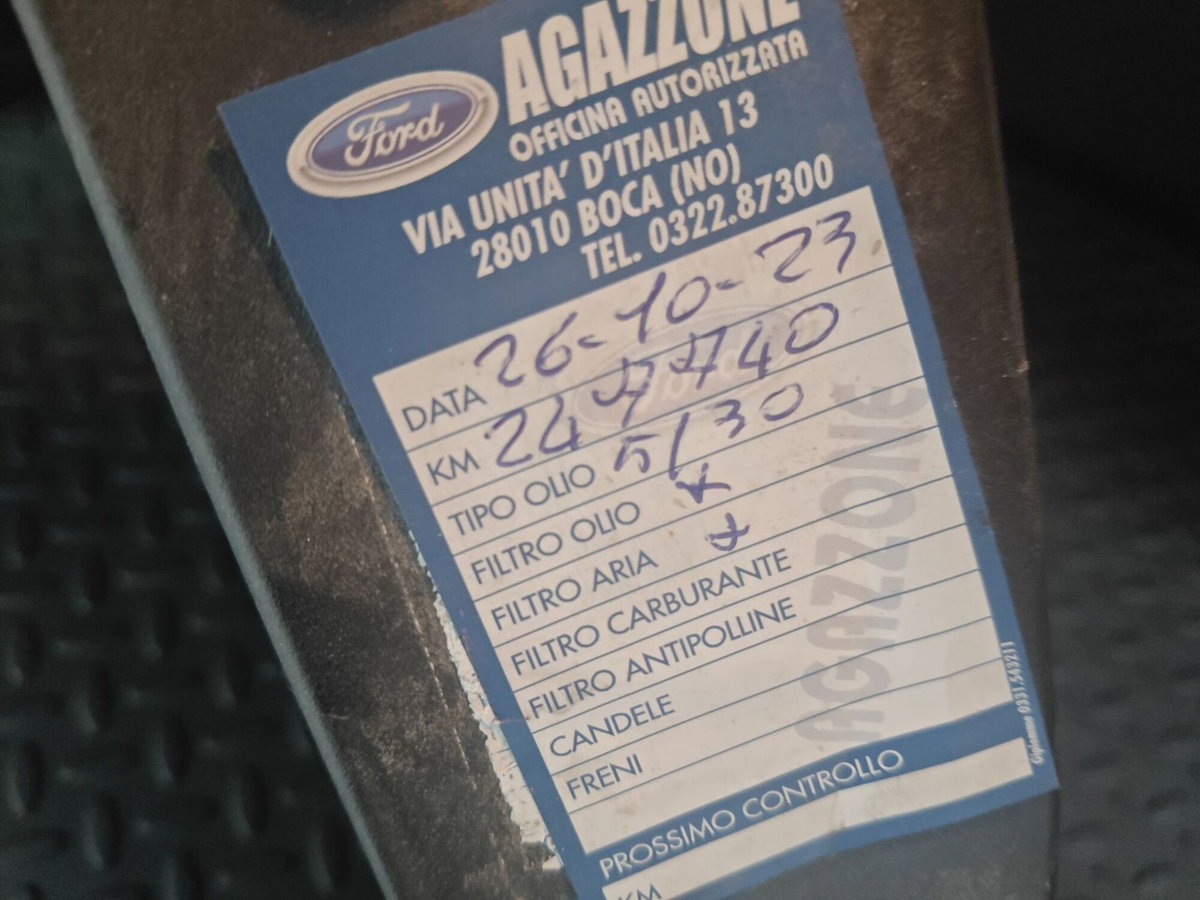 Ford
AGAZZONE
OFFICINA AUTORIZZATA
VIA UNITA' D'ITALIA 13
28010 BOCA (NO)
TEL. 0322.87300
DATA 26-10-23
KM 247740
TIPO OLIO 5/30
FILTRO OLIO x
FILTRO ARIA x
FILTRO CARBURANTE
FILTRO ANTIPOLLINE
CANDELE
FRENI
PROSSIMO CONTROLLO
KM
AGAZZONE
Ford